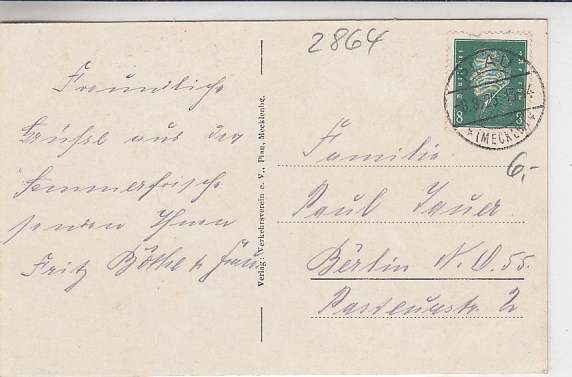 2864
Freundliche
Grüße aus der
Sommerfrische
senden Ihnen
Fritz Böthe u. Frau
Verlag: Verkehrsverein e. V., Plau, Mecklenbg.
PLAU
(MECKLB)
8 8
6,-
Familie
Paul Jauer
Berlin N. O. 55.
Pasteurstr. 2